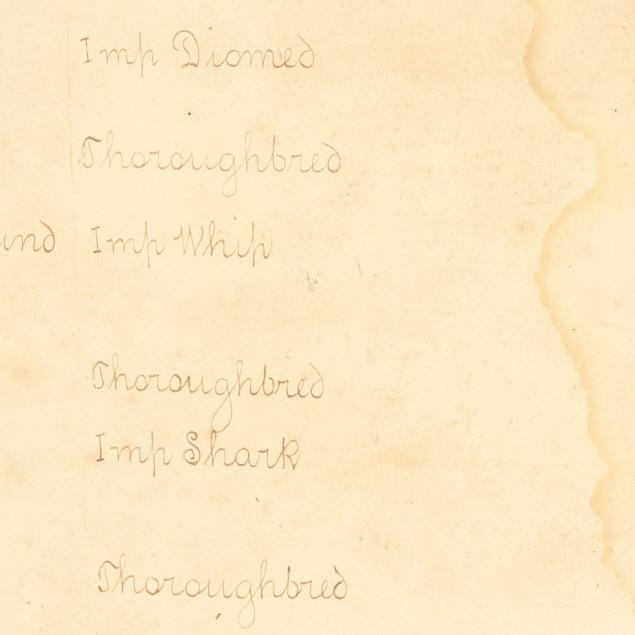 Imp Diomed
Thoroughbred
Imp Whip
Thoroughbred
Imp Shark
Thoroughbred